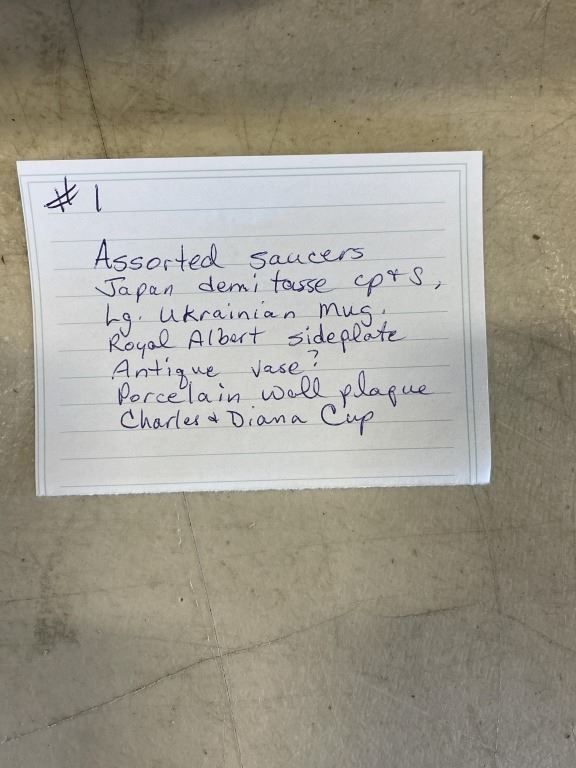 # 1
Assorted saucers
Japan demi tasse cp + S,
Lg. Ukrainian Mug.
Royal Albert sideplate
Antique vase?
Porcelain wall plaque
Charles + Diana Cup